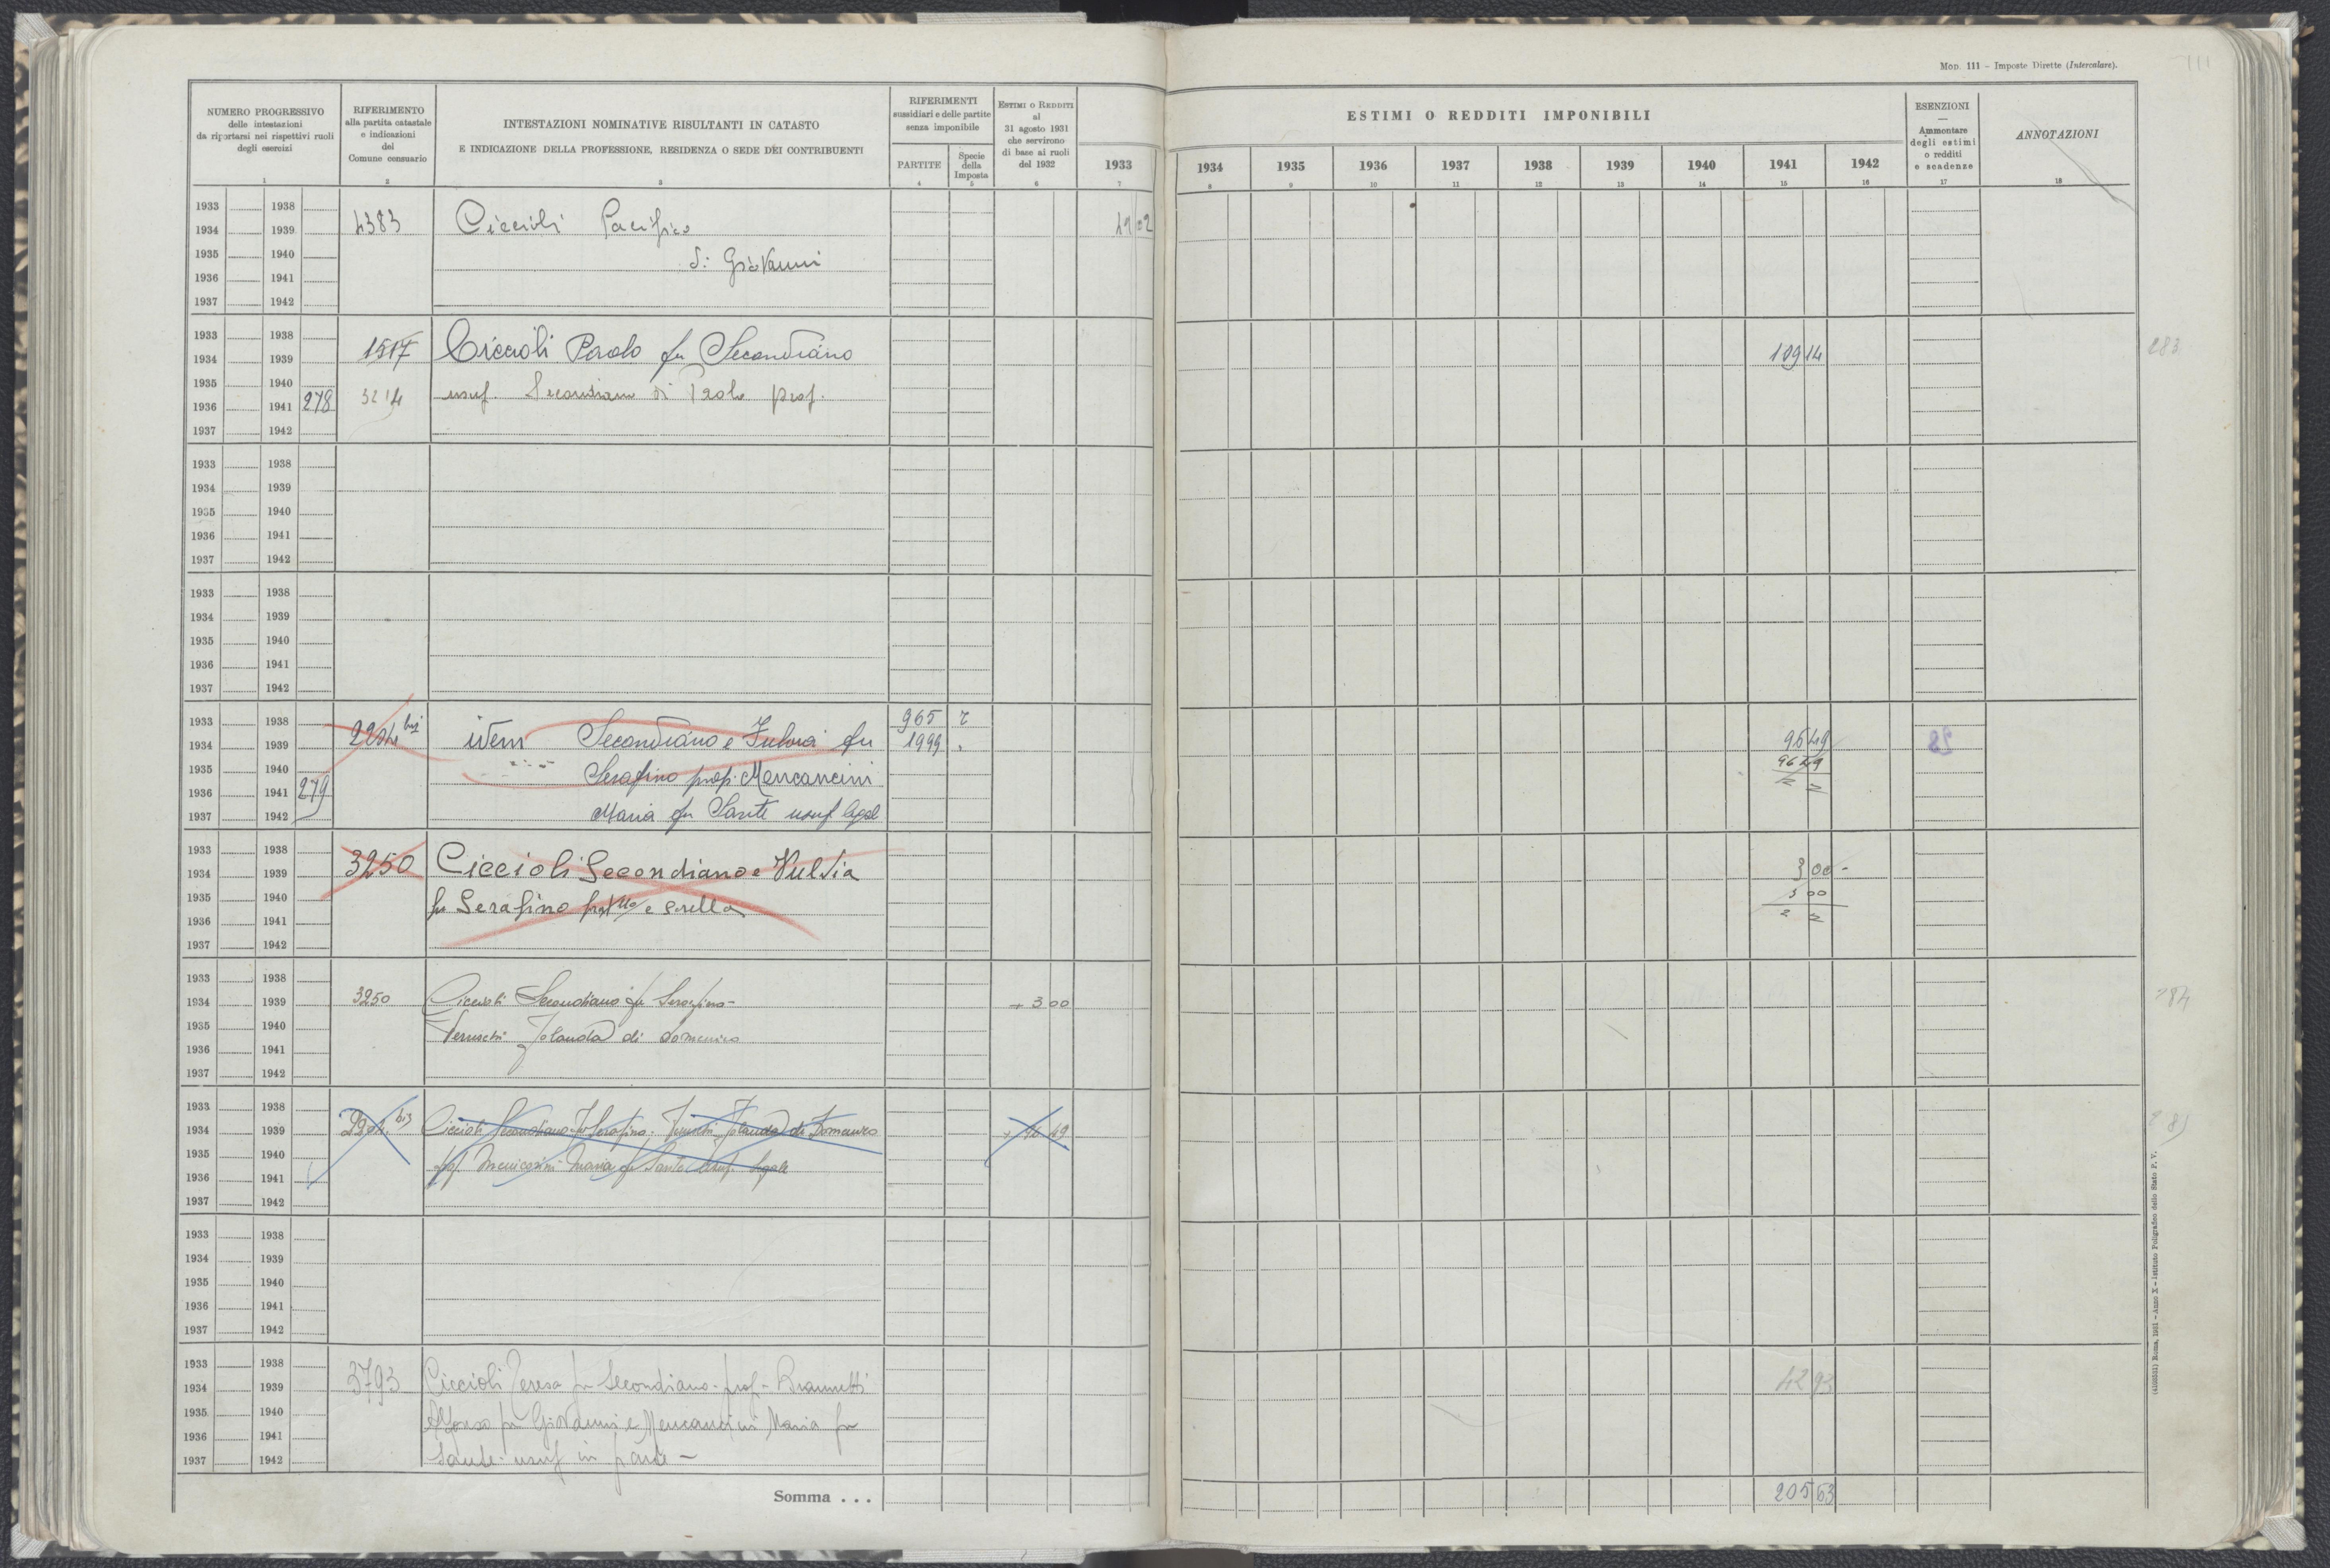 MOD. 111 - Imposte Dirette (Intercalare).
111
NUMERO PROGRESSIVO
delle intestazioni
da riportarsi nei rispettivi ruoli
degli esercizi
1
RIFERIMENTO
alla partita catastale
e indicazioni
del
Comune censuario
2
INTESTAZIONI NOMINATIVE RISULTANTI IN CATASTO
E INDICAZIONE DELLA PROFESSIONE, RESIDENZA O SEDE DEI CONTRIBUENTI
3
RIFERIMENTI
sussidiari e delle partite
senza imponibile
PARTITE
4
Specie
della
Imposta
5
ESTIMI O REDDITI
al
31 agosto 1931
che servirono
di base ai ruoli
del 1932
6
ESTIMI O REDDITI IMPONIBILI
1933 1934 1935 1936 1937 1938 1939 1940 1941 1942
7 8 9 10 11 12 13 14 15 16
ESENZIONI
—
Ammontare
degli estimi
o redditi
e scadenze
17
ANNOTAZIONI
18
1933 1938
1934 1939 4383 Ciccioli Pacifico
1935 1940 di Giovanni
1936 1941
1937 1942
1933 1938 1517 Ciccioli Paolo fu Secondiano 109 14 283
1934 1939
1935 1940 3214 usuf. Secondiano di Paolo prof.
1936 1941 278
1937 1942
1933 1938
1934 1939
1935 1940
1936 1941
1937 1942
1933 1938
1934 1939
1935 1940
1936 1941
1937 1942
1933 1938 965
1934 1939 2204 bis idem Secondiano e Fulvia fu 1999 96 49
1935 1940 Serafino prop. Mencancini 96 49
1936 1941 279
1937 1942 Maria fu Sante usuf legal
1933 1938
1934 1939 3250 Ciccioli Secondiano e Vulvia 3 00
1935 1940 fu Serafino fratello e sorella 3 00
1936 1941
1937 1942
1933 1938
1934 1939 3250 Ciccioli Secondiano fu Serafino - + 3 00
1935 1940 Jolanda di Domenico
1936 1941
1937 1942
1933 1938
1934 1939 2204 bis Ciccioli Secondiano fu Serafino. Jolanda di Domenico + 96 49
1935 1940
1936 1941 Maria fu Sante usuf. legale
1937 1942
1933 1938
1934 1939
1935 1940
1936 1941
1937 1942
1933 1938
1934 1939 3793 Ciccioli Teresa fu Secondiano - prof - 42 93
1935 1940
1936 1941 Alfonso fu Giovanni e Mencancini Maria fu
1937 1942 Sante usuf in parte -
Somma . . . 205 63
(4103531) Roma, 1931 - Anno X - Istituto Poligrafico dello Stato P. V.